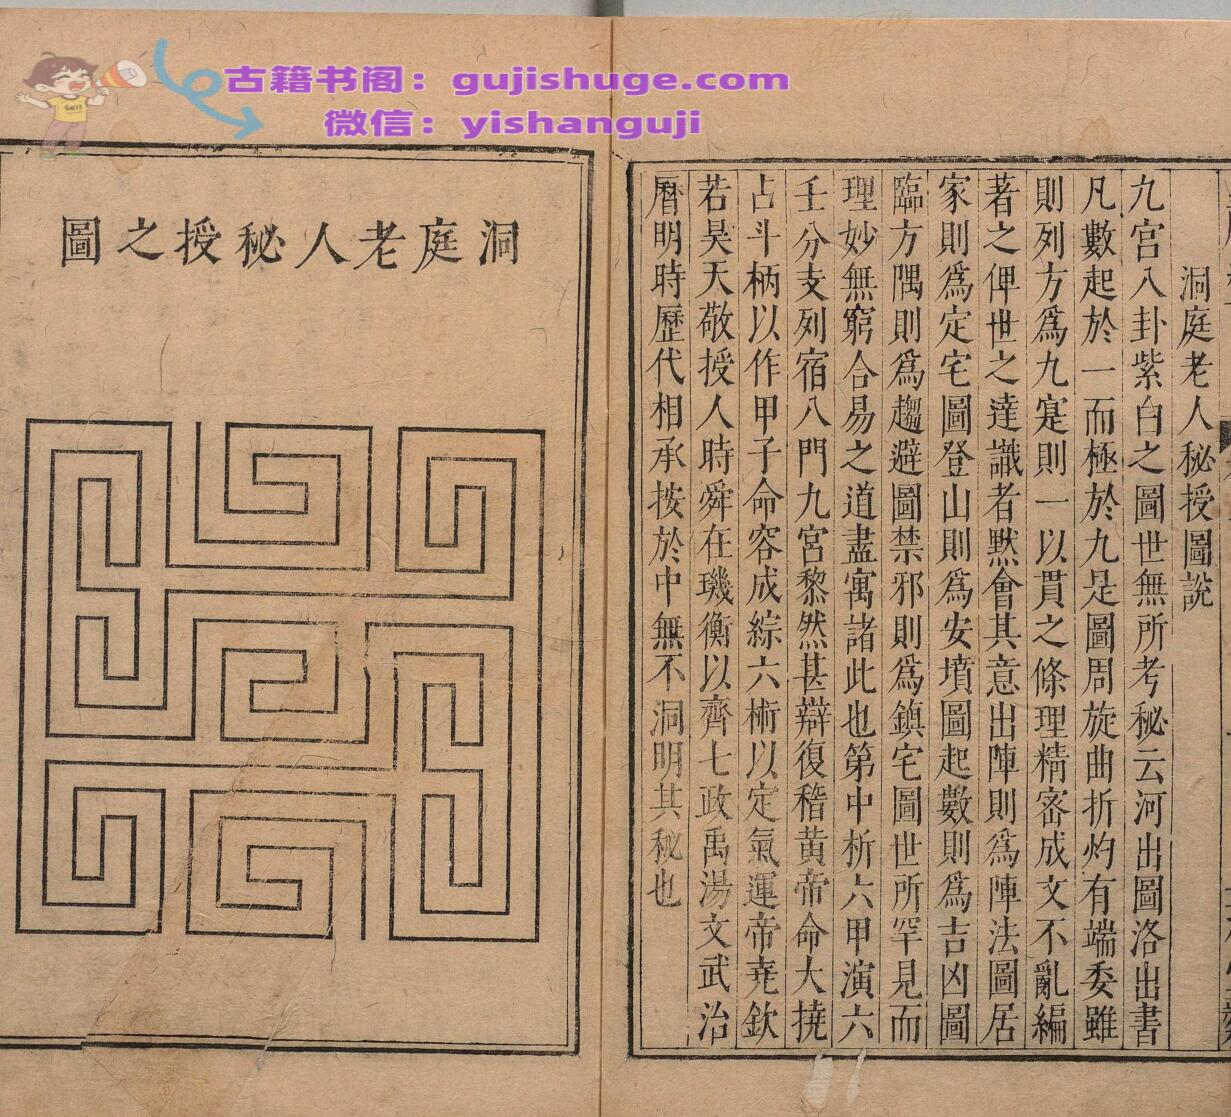 古籍书阁：gujishuge.com
微信：yishanguji
洞庭老人秘授圖說
九宮八卦紫白之圖世無所考秘云河出圖洛出書
凡數起於一而極於九是圖周旋曲折灼有端委雖
則列方爲九寔則一以貫之條理精密成文不亂編
著之俾世之達識者默會其意出陣則爲陣法圖居
家則爲定宅圖登山則爲安墳圖起數則爲吉凶圖
臨方隅則爲趨避圖禁邪則爲鎮宅圖世所罕見而
理妙無窮合易之道盡寓諸此也第中析六甲演六
壬分支列宿八門九宮黎然甚辯復稽黃帝命大撓
占斗柄以作甲子命容成綜六術以定氣運帝堯欽
若昊天敬授人時舜在璣衡以齊七政禹湯文武治
曆明時歷代相承按於中無不洞明其秘也
洞庭老人秘授之圖